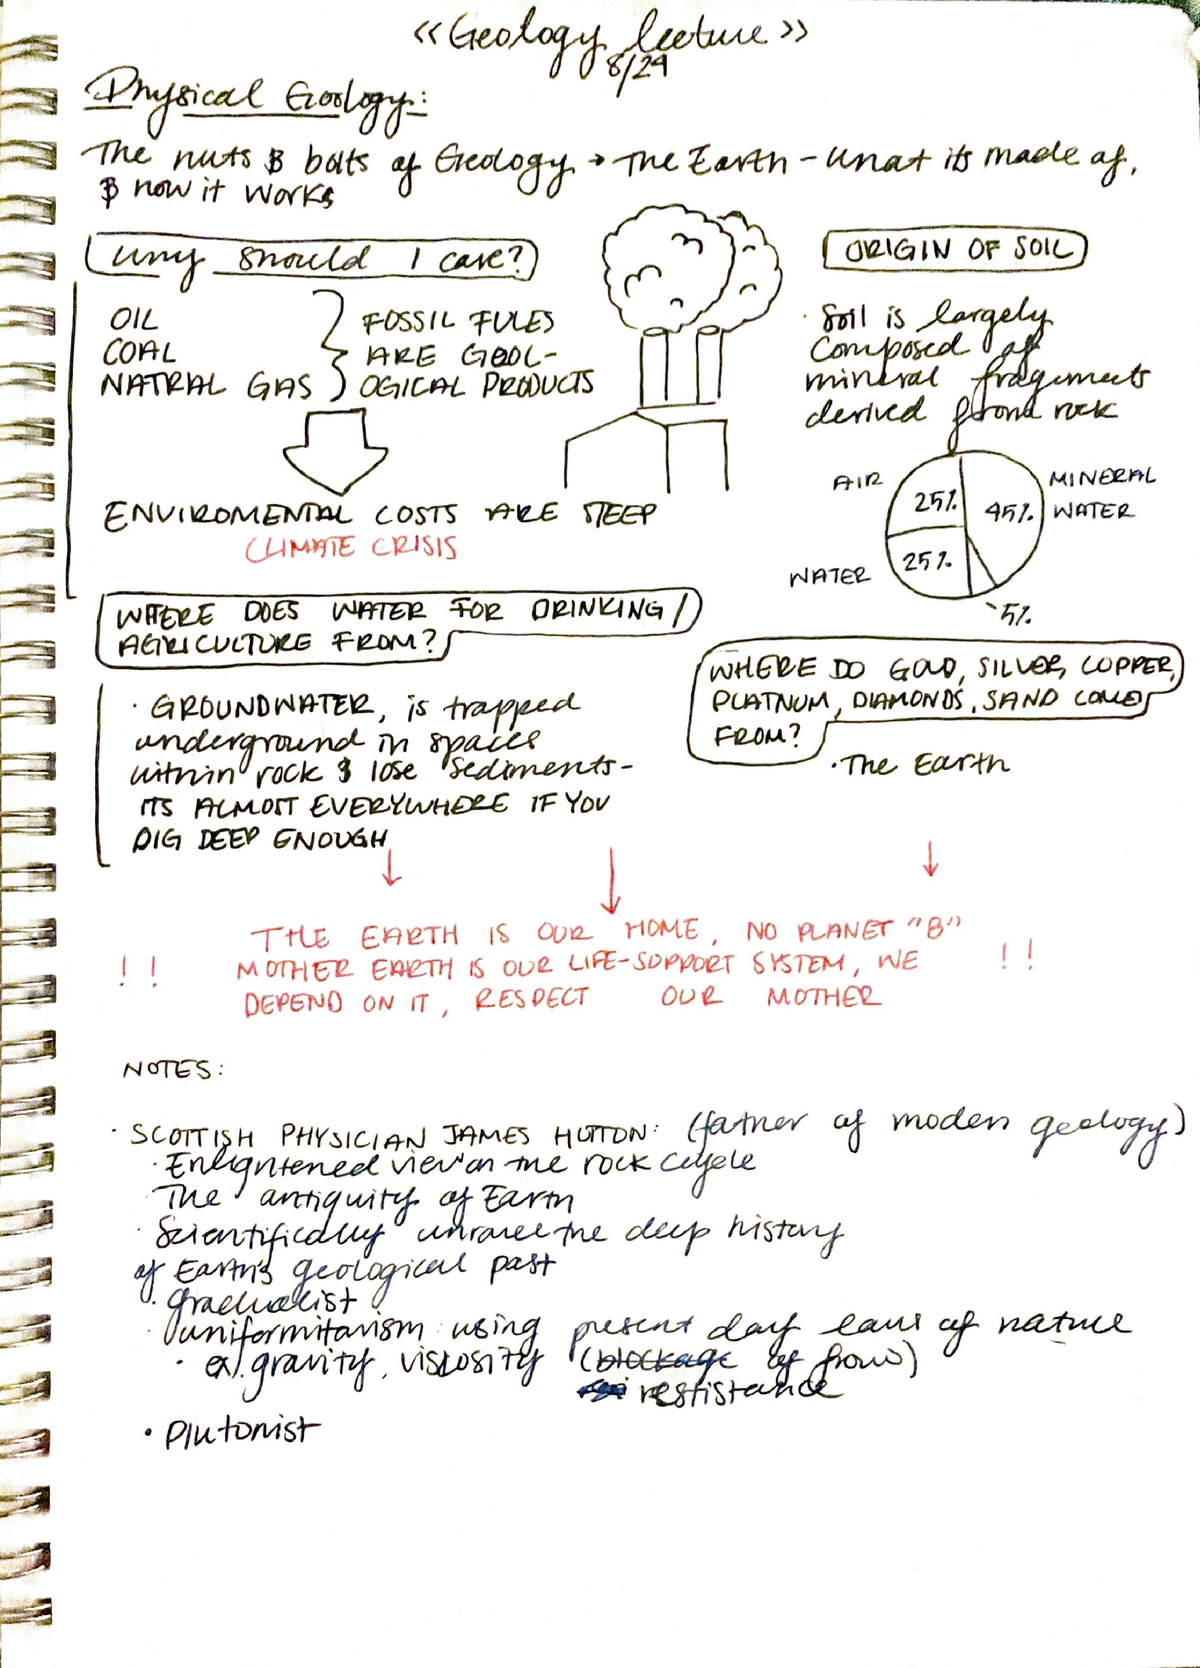 «Geology lecture»
8/29
Physical Geology:
The nuts & bolts of Geology → The Earth - what its made of,
& how it works
Why should I care?
OIL
COAL
NATRAL GAS
FOSSIL FULES
ARE GEOL-
OGICAL PRODUCTS
ENVIROMENTAL COSTS ARE STEEP
CLIMATE CRISIS
ORIGIN OF SOIL
· Soil is largely
composed of
mineral fragements
derived from rock
AIR
25%
MINERAL
45%
WATER
WATER
25%
5%
WHERE DOES WATER FOR DRINKING/
AGRICULTURE FROM?
· GROUNDWATER, is trapped
underground in spaces
within rock & lose sediments-
ITS ALMOST EVERYWHERE IF YOU
DIG DEEP ENOUGH
WHERE DO GOLD, SILVER, COPPER,
PLATNUM, DIAMONDS, SAND COME
FROM?
· The Earth
THE EARTH IS OUR HOME, NO PLANET "B"
!! MOTHER EARTH IS OUR LIFE-SUPPORT SYSTEM, WE !!
DEPEND ON IT, RESPECT OUR MOTHER
NOTES:
· SCOTTISH PHYSICIAN JAMES HUTTON: (father of modern geology)
· Enlightened view on the rock cycle
· The antiquity of Earth
· Scientifically unravel the deep history
of Earth's geological past
· gradualist
· uniformitarism: using present day laws of nature
· ex). gravity, viscosity (blockage of flow)
restistance
· Plutonist